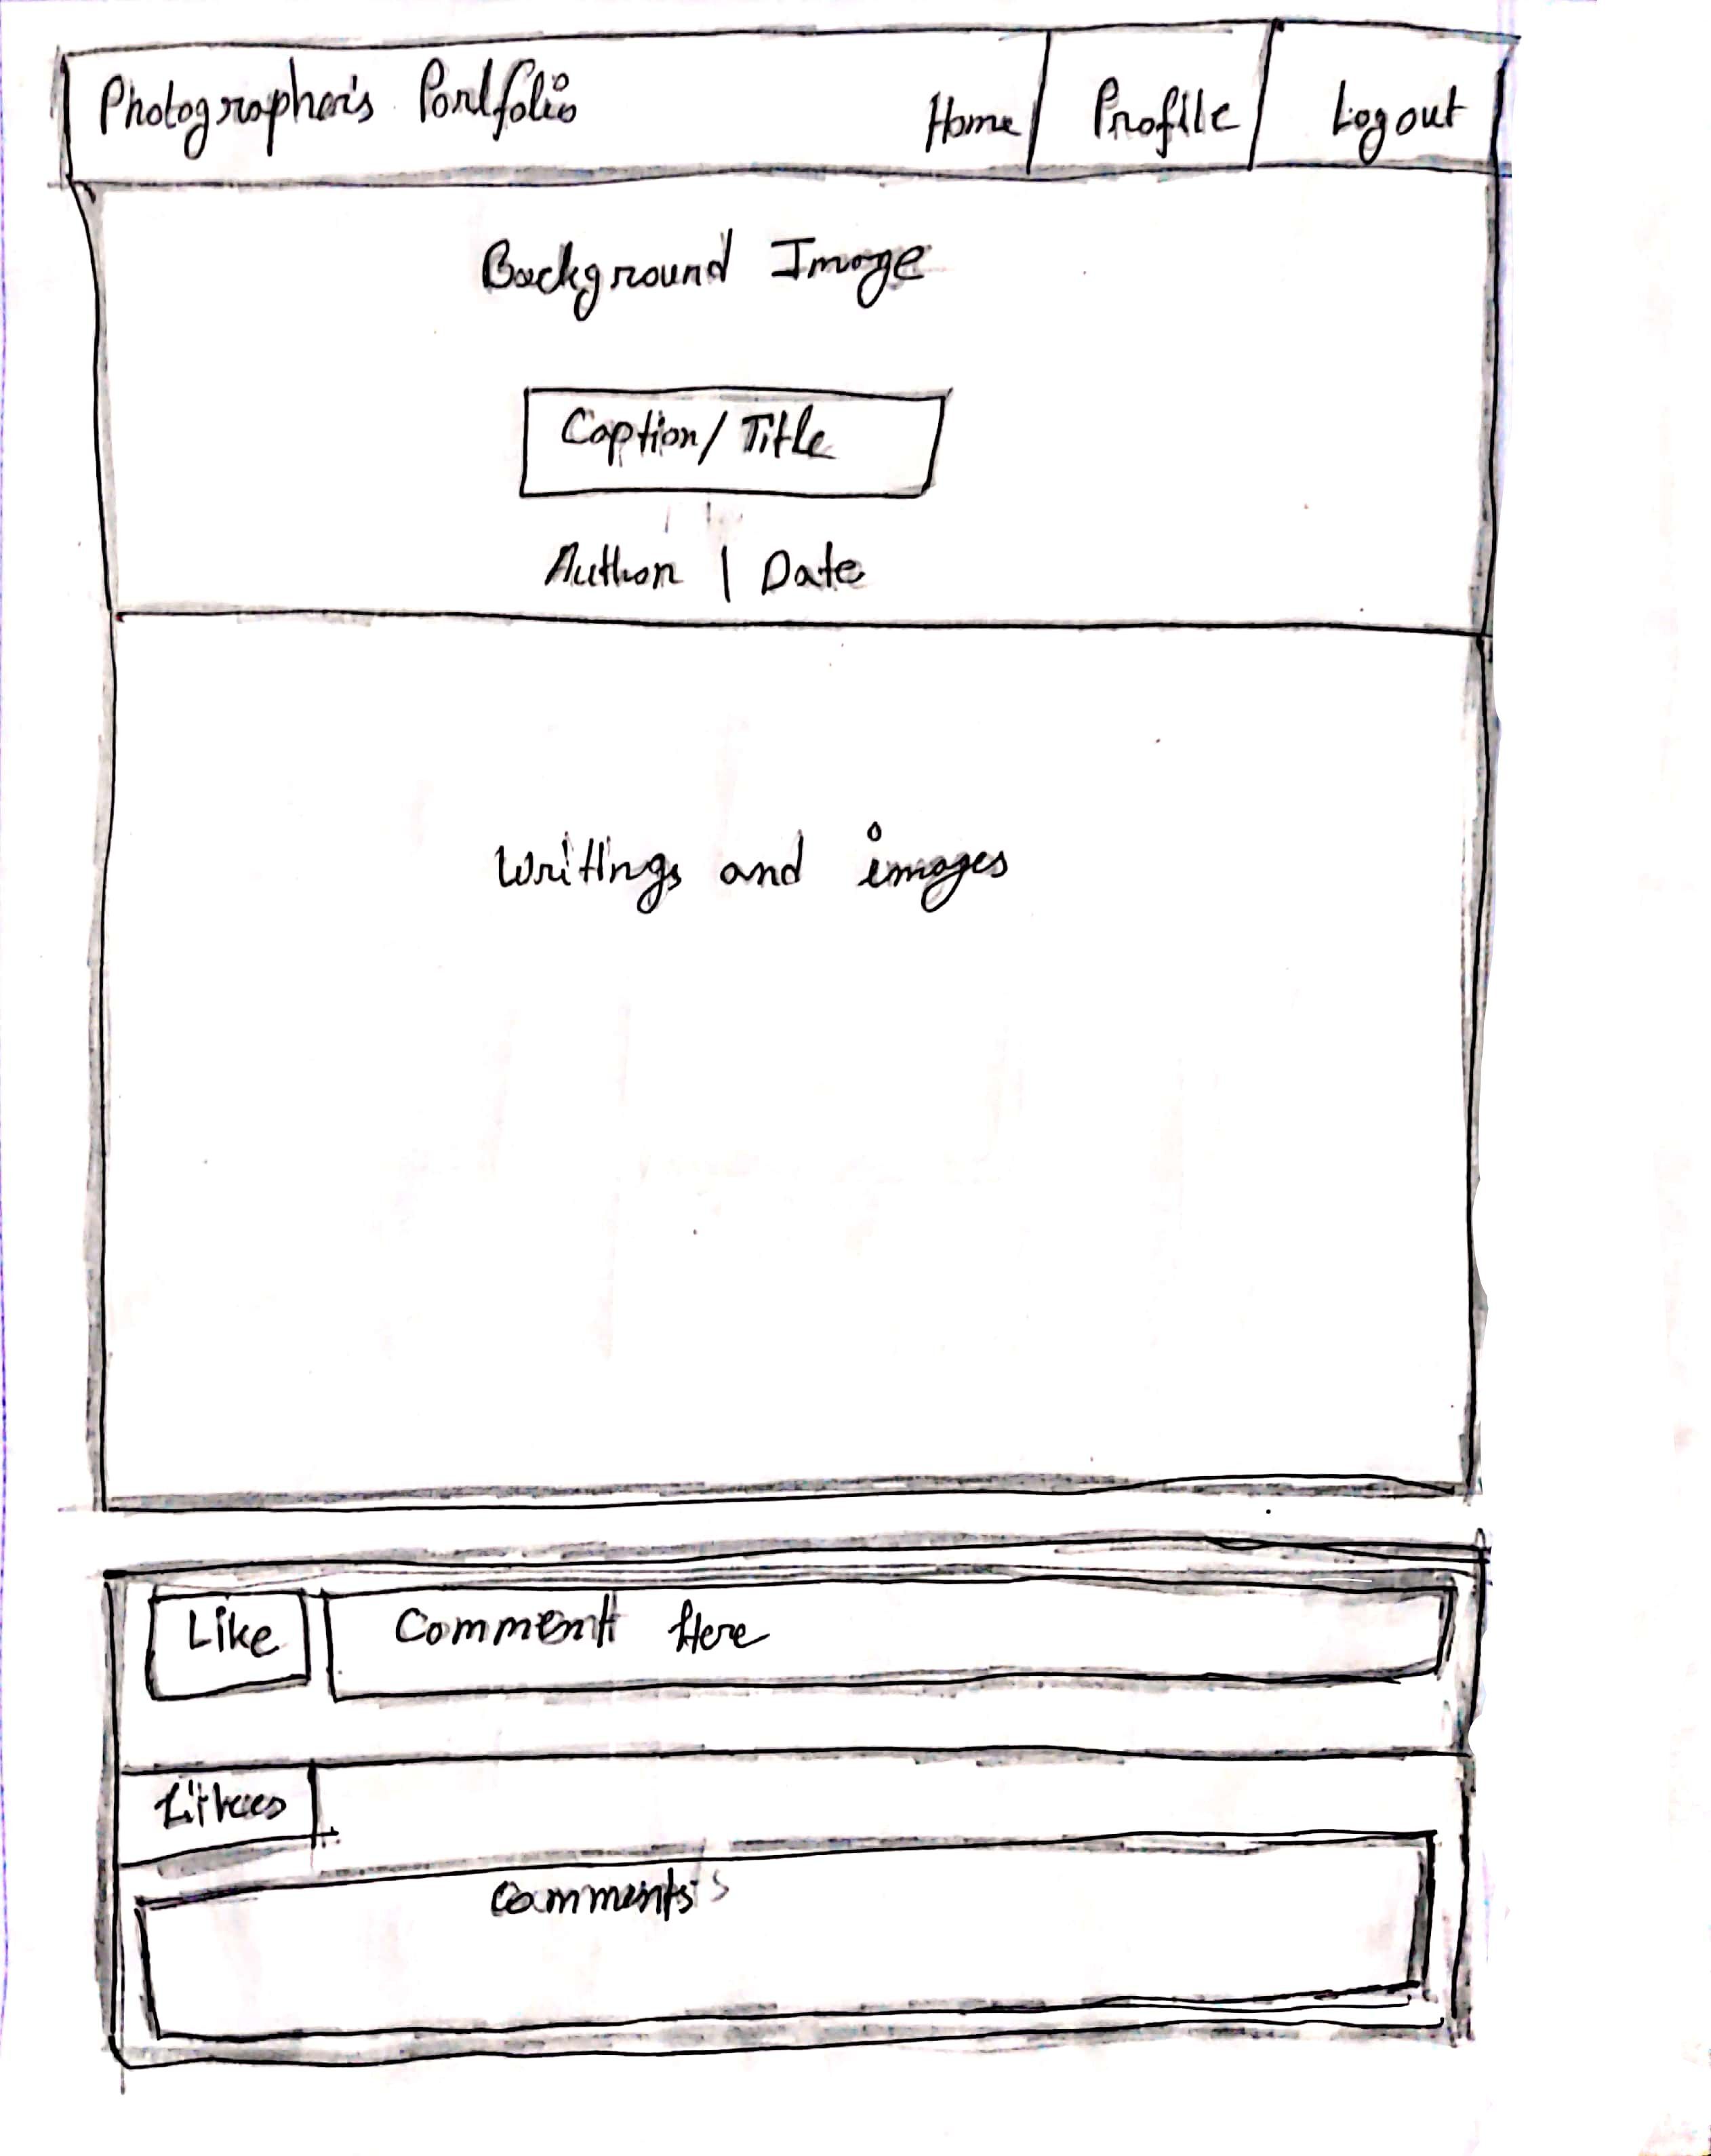 Photographer's Portfolio Home Profile Logout
Background Image
Caption/Title
Author | Date
Writings and images
Like Comment Here
Likes
Comments